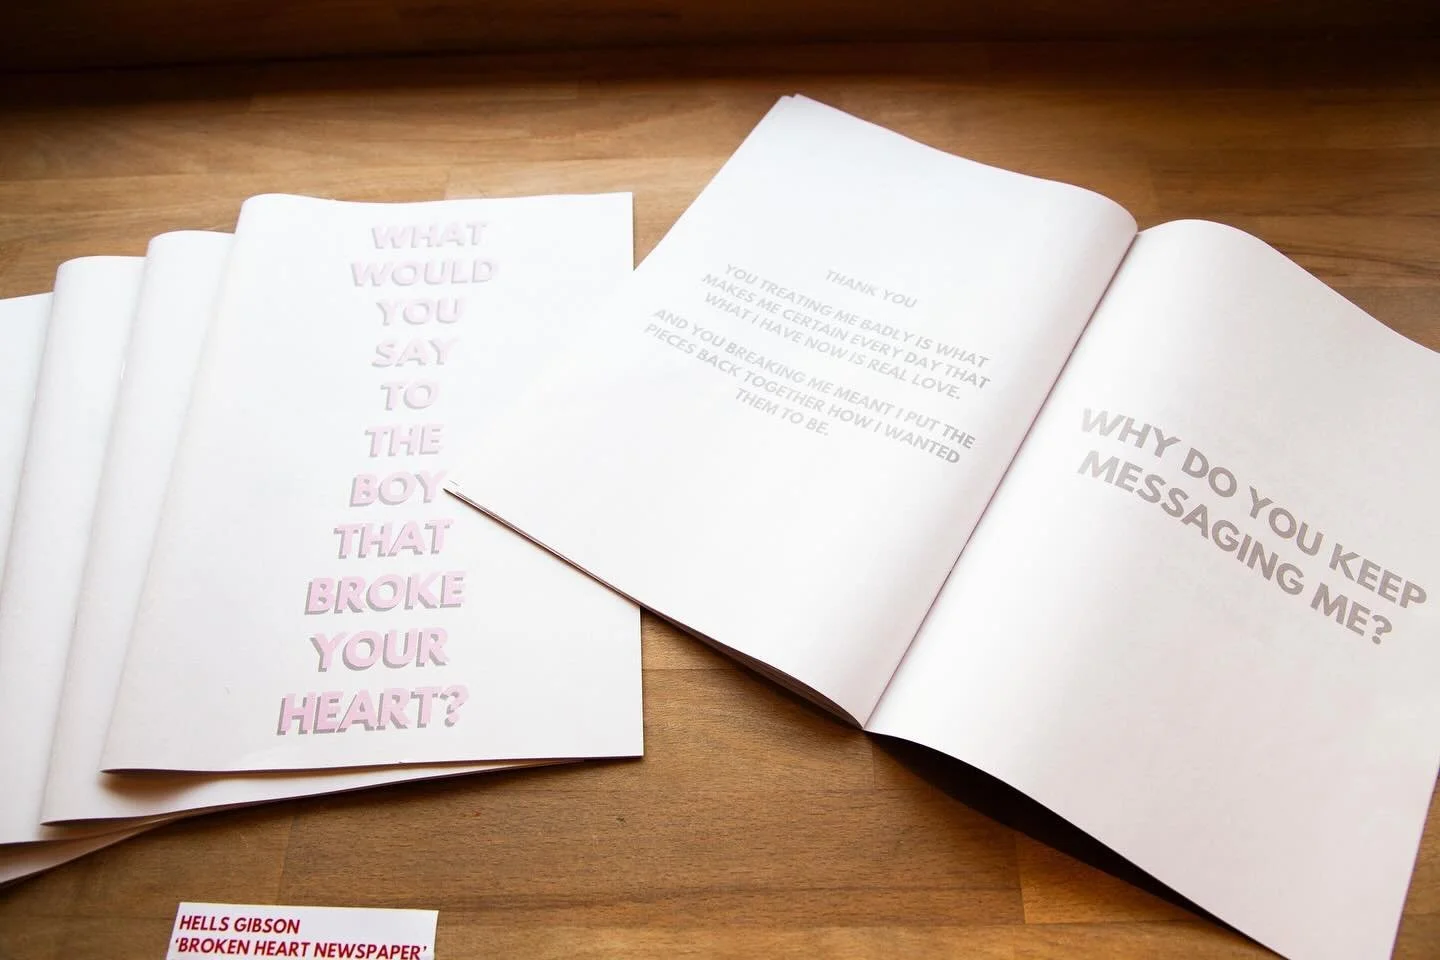 WHAT
WOULD
YOU
SAY
TO
THE
BOY
THAT
BROKE
YOUR
HEART?
THANK YOU
YOU TREATING ME BADLY IS WHAT
MAKES ME CERTAIN EVERY DAY THAT
WHAT I HAVE NOW IS REAL LOVE.
AND YOU BREAKING ME MEANT I PUT THE
PIECES BACK TOGETHER HOW I WANTED
THEM TO BE.
WHY DO YOU KEEP
MESSAGING ME?
HELLS GIBSON
'BROKEN HEART NEWSPAPER'